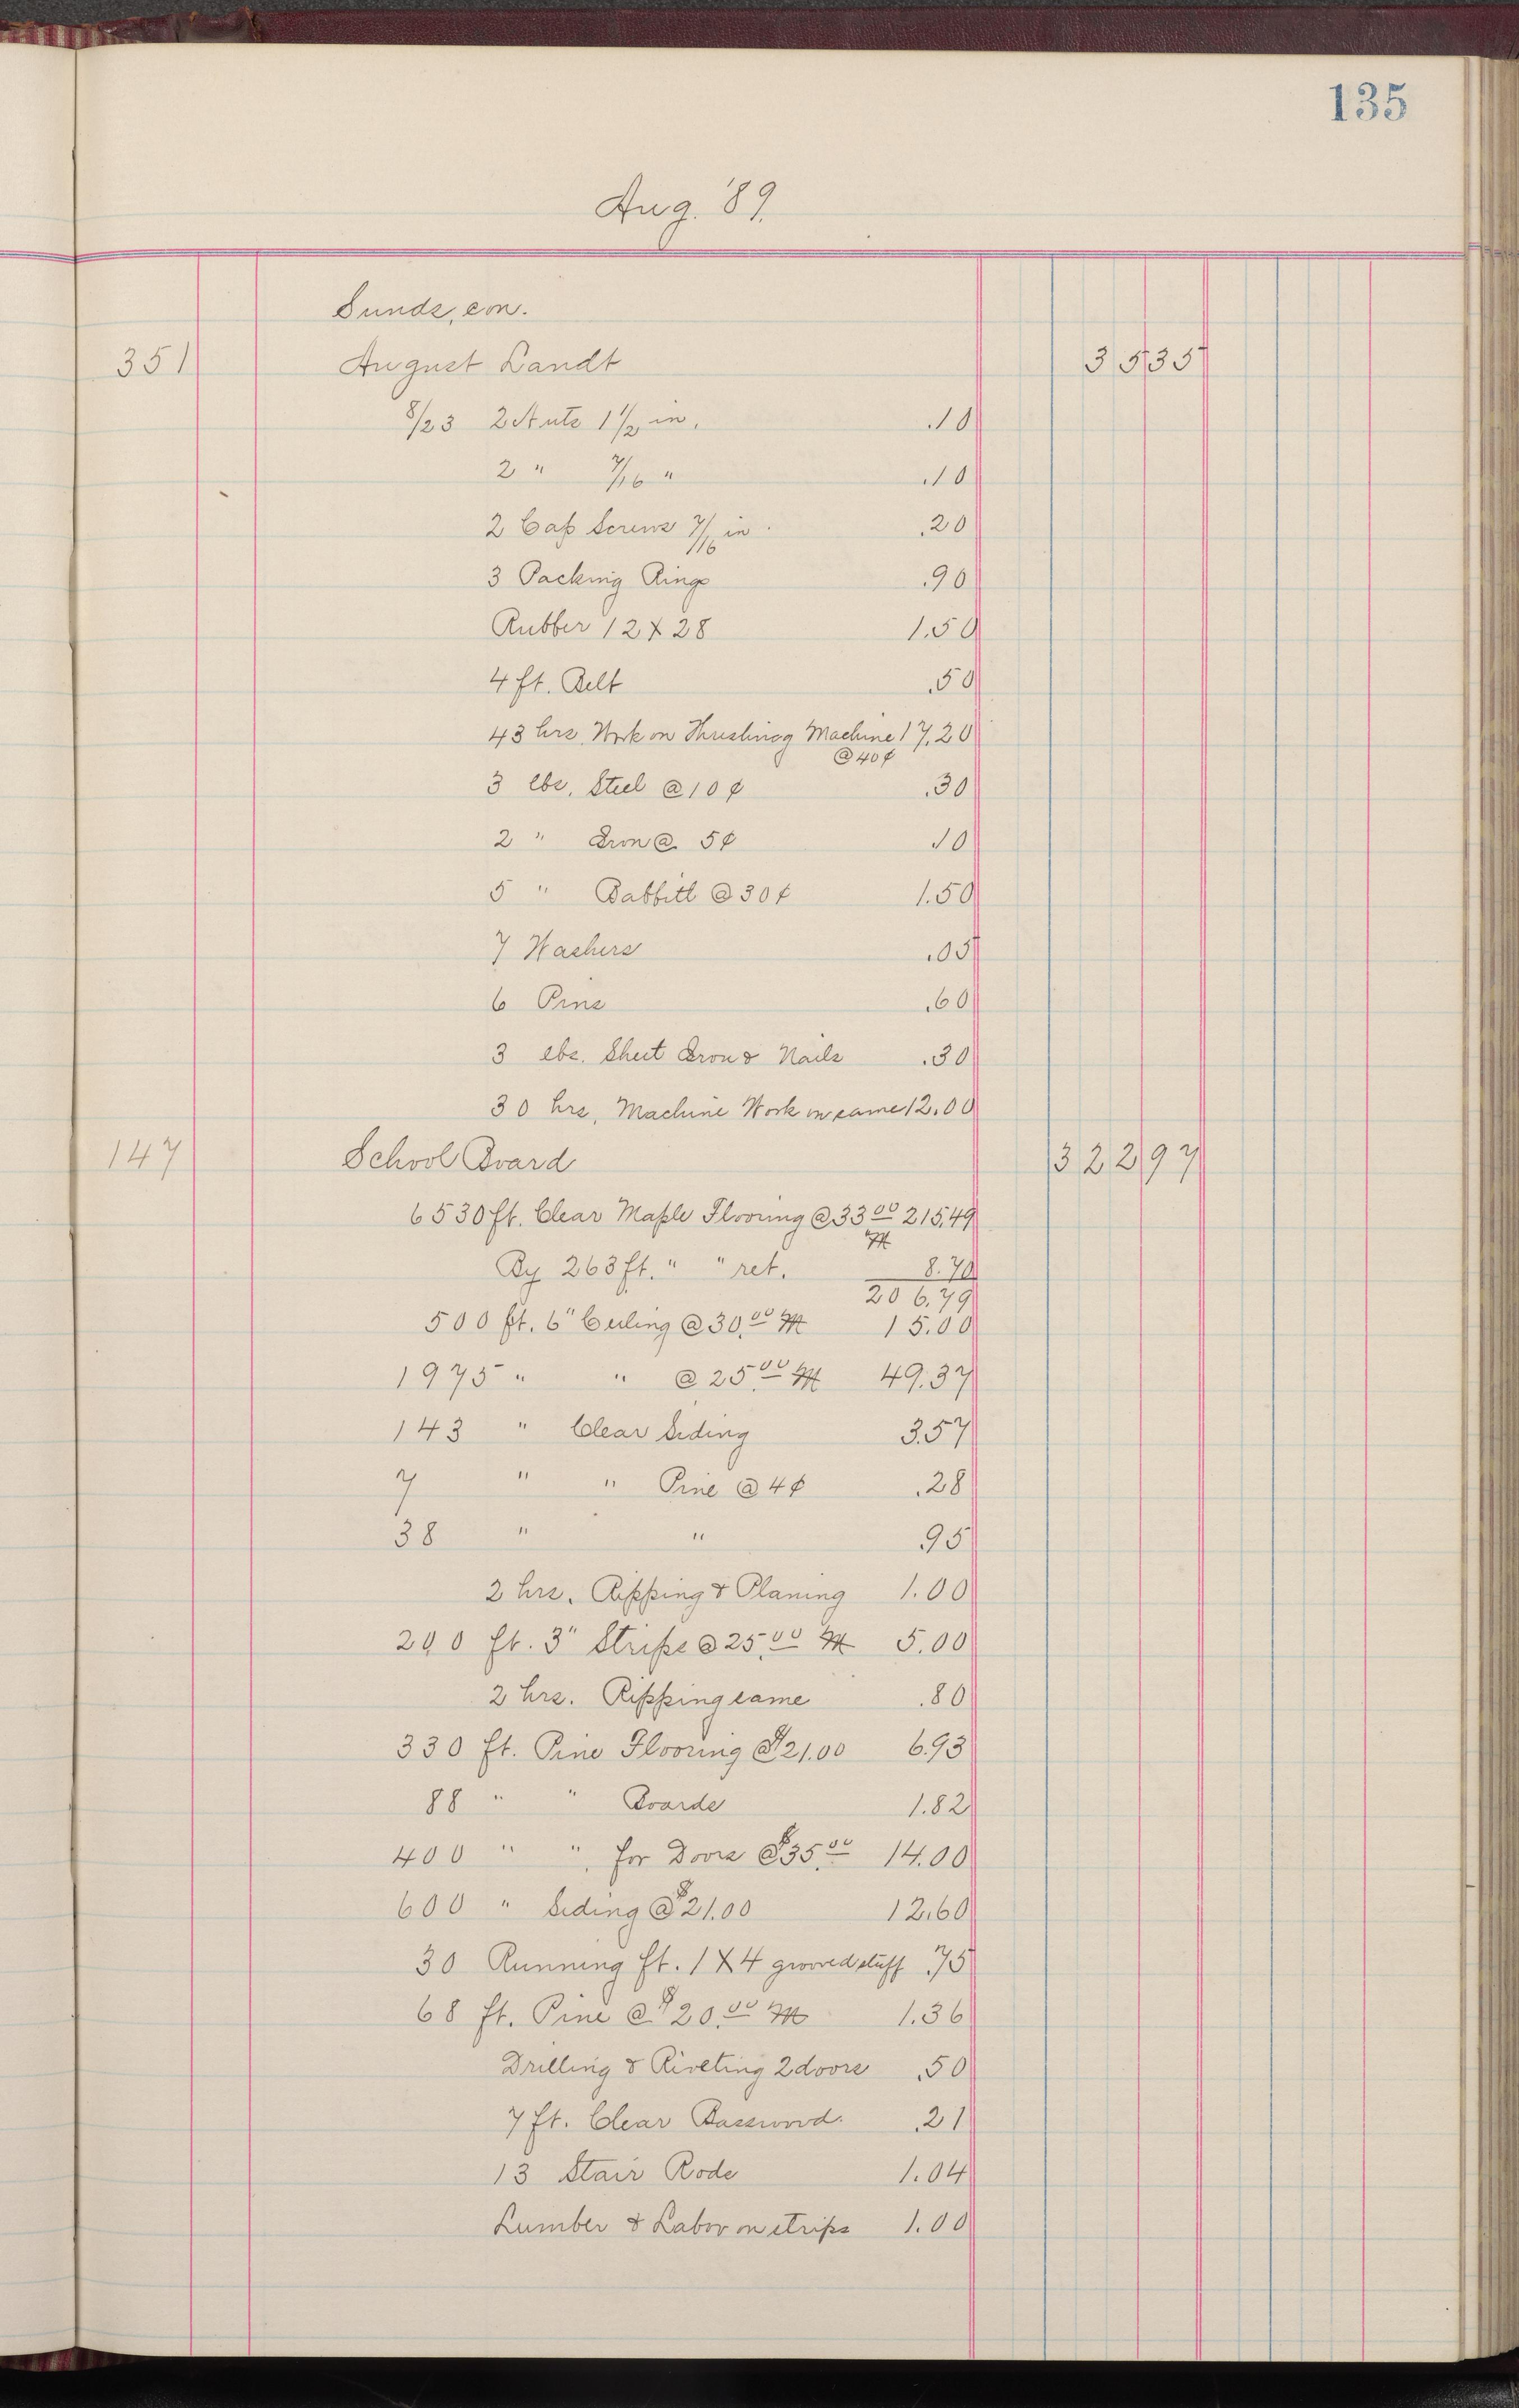 135
Aug. '89.
Sunds, con.
351 August Landt 35 35
8/23 2 Nuts 1 1/2 in. .10
2 " 7/16 " .10
2 Cap Screws 7/16 in. .20
3 Packing Rings .90
Rubber 12 X 28 1.50
4 ft. Belt .50
43 hrs. Work on Threshing Machine 17.20
@ 40¢
3 lbs. Steel @ 10¢ .30
2 " Iron @ 5¢ .10
5 " Babbitt @ 30¢ 1.50
7 Washers .05
6 Pins .60
3 lbs. Sheet Iron & Nails .30
30 hrs. Machine Work on same 12.00
147 School Board 322 97
6530 ft. Clear Maple Flooring @ 33 00 215.49
M
By 263 ft. " " ret. 8.70
206.79
500 ft. 6" Ceiling @ 30.00 M 15.00
1975 " " @ 25.00 M 49.37
143 " Clear Siding 3.57
7 " " Pine @ 4¢ .28
38 " " .95
2 hrs. Ripping & Planing 1.00
200 ft. 3" Strips @ 25.00 M 5.00
2 hrs. Ripping same .80
330 ft. Pine Flooring @ $21.00 6.93
88 " " Boards 1.82
400 " " for Doors @ $35.00 14.00
600 " Siding @ $21.00 12.60
30 Running ft. 1 X 4 grooved stuff .75
68 ft. Pine @ $20.00 M 1.36
Drilling & Riveting 2 doors .50
7 ft. Clear Basswood. .21
13 Stair Rods 1.04
Lumber & Labor on strips 1.00